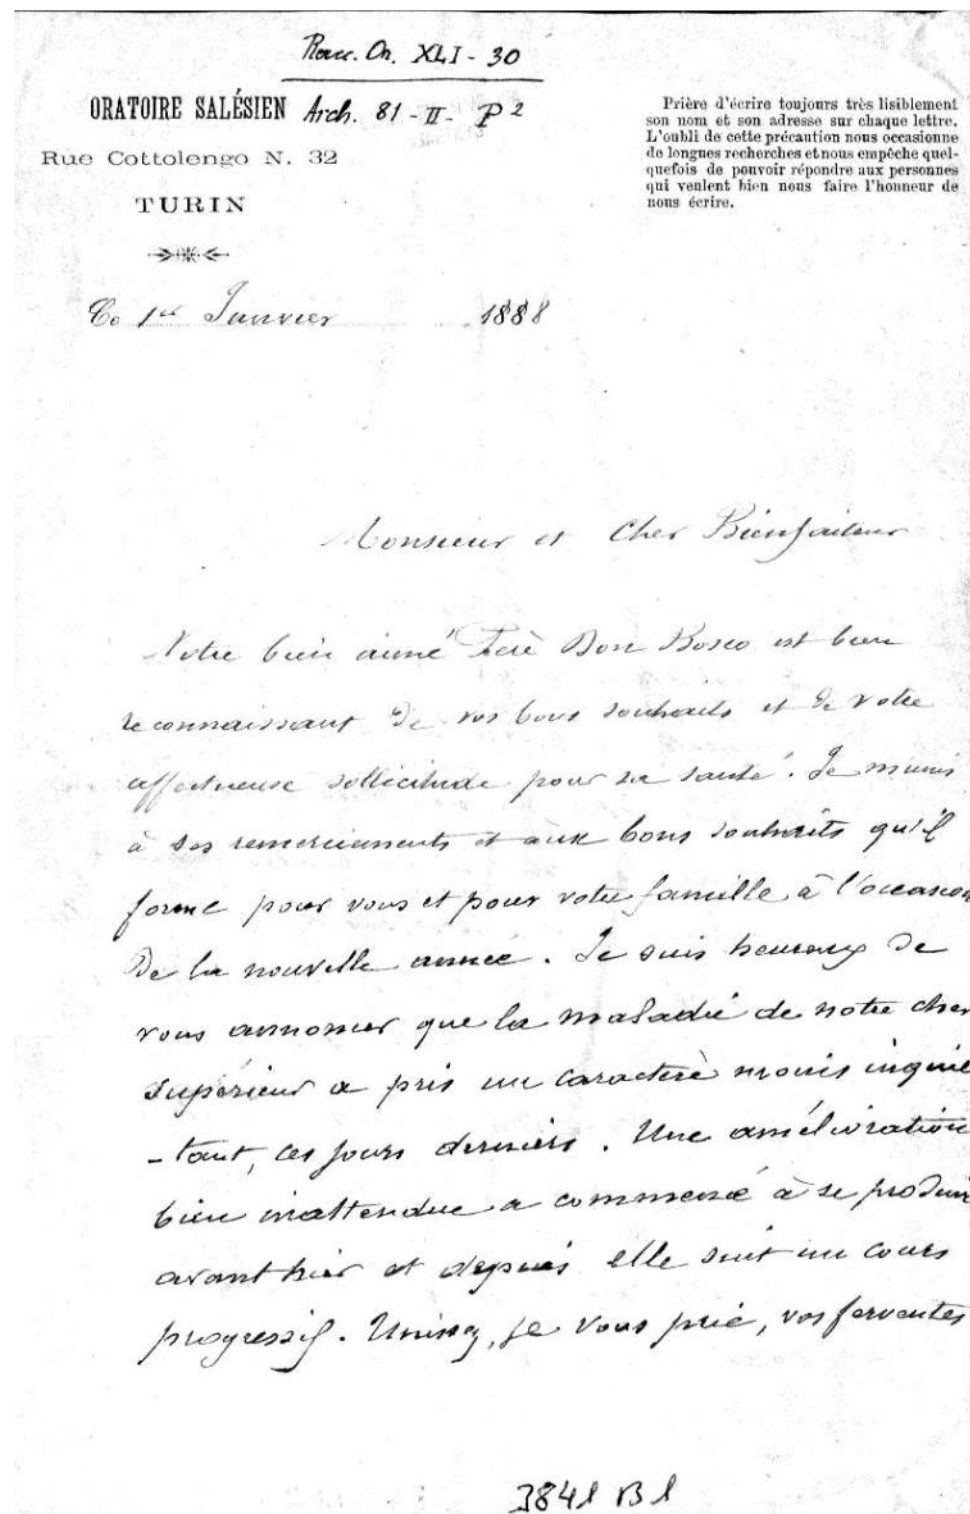 Racc. On. XLI - 30
ORATOIRE SALÉSIEN Arch. 81 - II - P 2
Rue Cottolengo N. 32
TURIN
Prière d'écrire toujours très lisiblement
son nom et son adresse sur chaque lettre.
L'oubli de cette précaution nous occasionne
de longues recherches et nous empêche quel-
quefois de pouvoir répondre aux personnes
qui veulent bien nous faire l'honneur de
nous écrire.
Ce 1er Janvier 1888
Monsieur et Cher Bienfaiteur
Notre bien aimé Père Don Bosco est bien
reconnaissant de vos bons souhaits et de votre
affectueuse sollicitude pour sa santé. Je m'unis
à ses remerciements et aux bons souhaits qu'il
forme pour vous et pour votre famille à l'occasion
De la nouvelle année. Je suis heureux de
vous annoncer que la maladie de notre cher
Supérieur a pris un caractère moins inquié
-tant, ces jours derniers. Une amélioration
bien inattendue a commencé à se produire
avant hier et depuis elle suit un cours
progressif. Unissez, je vous prie, vos ferventes
3841 B 1